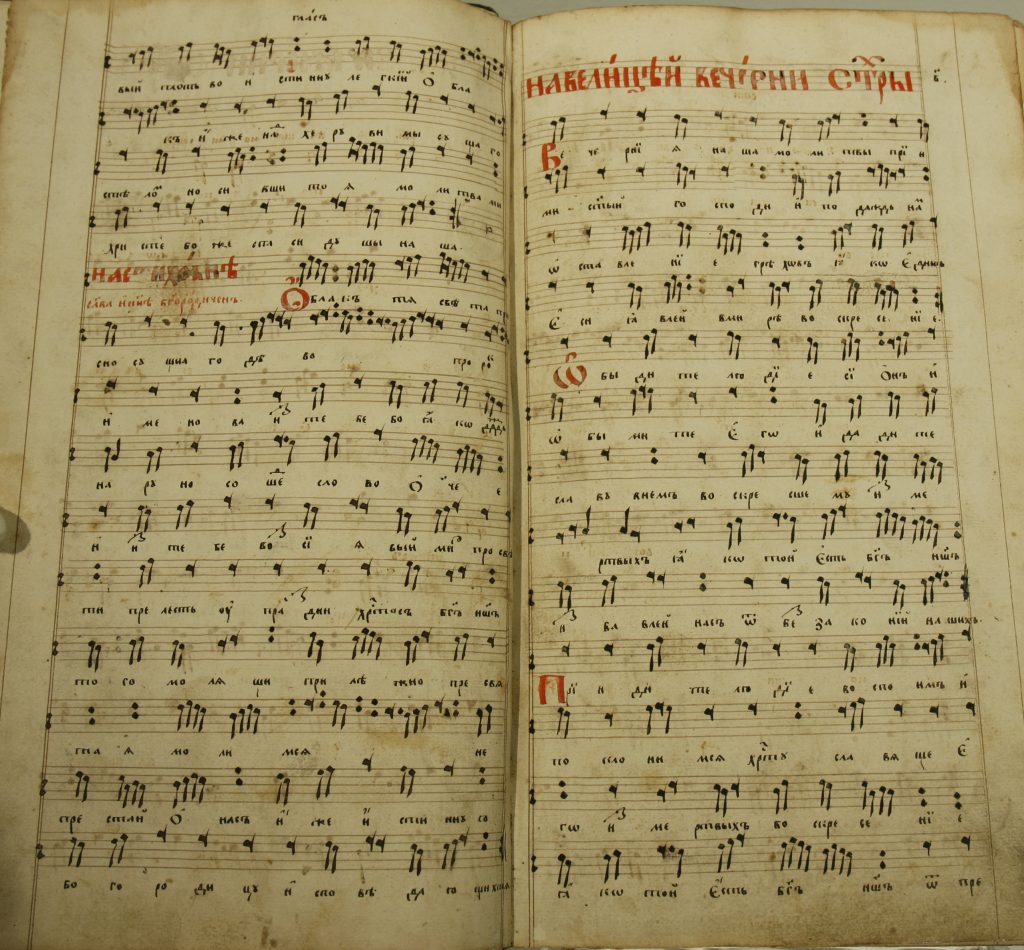 гла́съ
вый плоть во и сти нну ле гкїй О бла
къ и́ же на хе ру ви мы су ща го
стѣ ло но си вши то я мо ли тва ми
хри сте бо же спа си ду шы на ша
сла́ва и ны́нѣ бг҃оро́диченъ.
О блакъ тя свѣ та при
сно су щна го дѣ во про рокъ
и ме но ва и те бе бо га ко
на ру но со ше сло во О че е
и и з те бе во сї я вый мир про свѣ
ти пре лесть оу пра здни хр҃тосъ бг҃ъ нашъ
то го мо ля щи при лѣ жно пре свя
та я мо ли мся не
пре стай О насъ и же и сти нну ю
бо го ро ди цу и спо вѣ да ю щихъ тя
НА ВЕЛИ́ЦѢЙ ВЕЧЕ́РНИ СТ҃РЫ
Ве че рнї я на ша мо ли твы прїи
ми ст҃ый го спо ди и по даждь намъ
ѡ ста вле нї е грѣ хѡвъ ꙗ кѡ Единъ
Е си ꙗ влей вми рѣ во скре се нї е.
Ѡ бы ди те лю дї е сї Онъ и
ѡ бы ми те Е гѡ и да ди те
сла ву внемъ во скре сше му и з ме
ртвыхъ ꙗ кѡ той Есть бг҃ъ нашъ
и з ба влей насъ ѿ бе за ко нїй на шихъ.
Прї и ди те лю дї е во спо имъ и
по кло ни мся хр҃ту сла вя ще Е
гѡ и з ме ртвыхъ во скре се нї е
ꙗ кѡ той Есть бг҃ъ нашъ ѿ пре